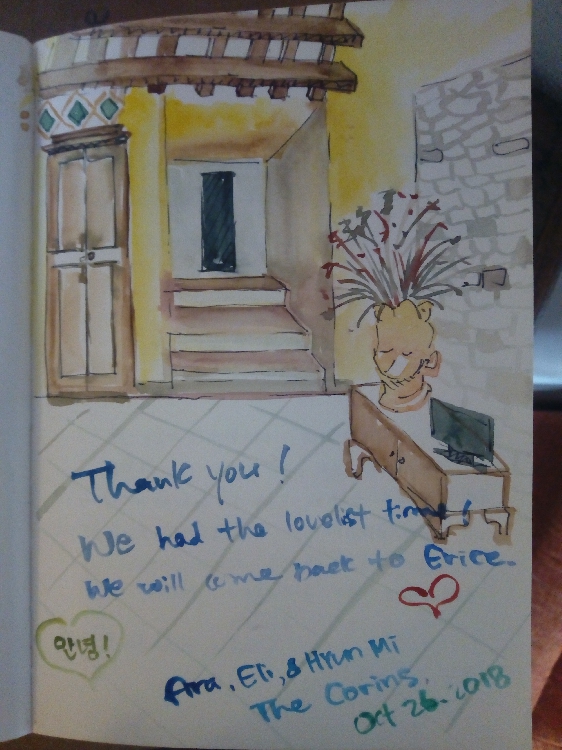 Thank you!
We had the lovelist time!
We will come back to Erice.
안녕!
Ara, Eli, & Hyun Mi
The Corins,
Oct 26. 2018